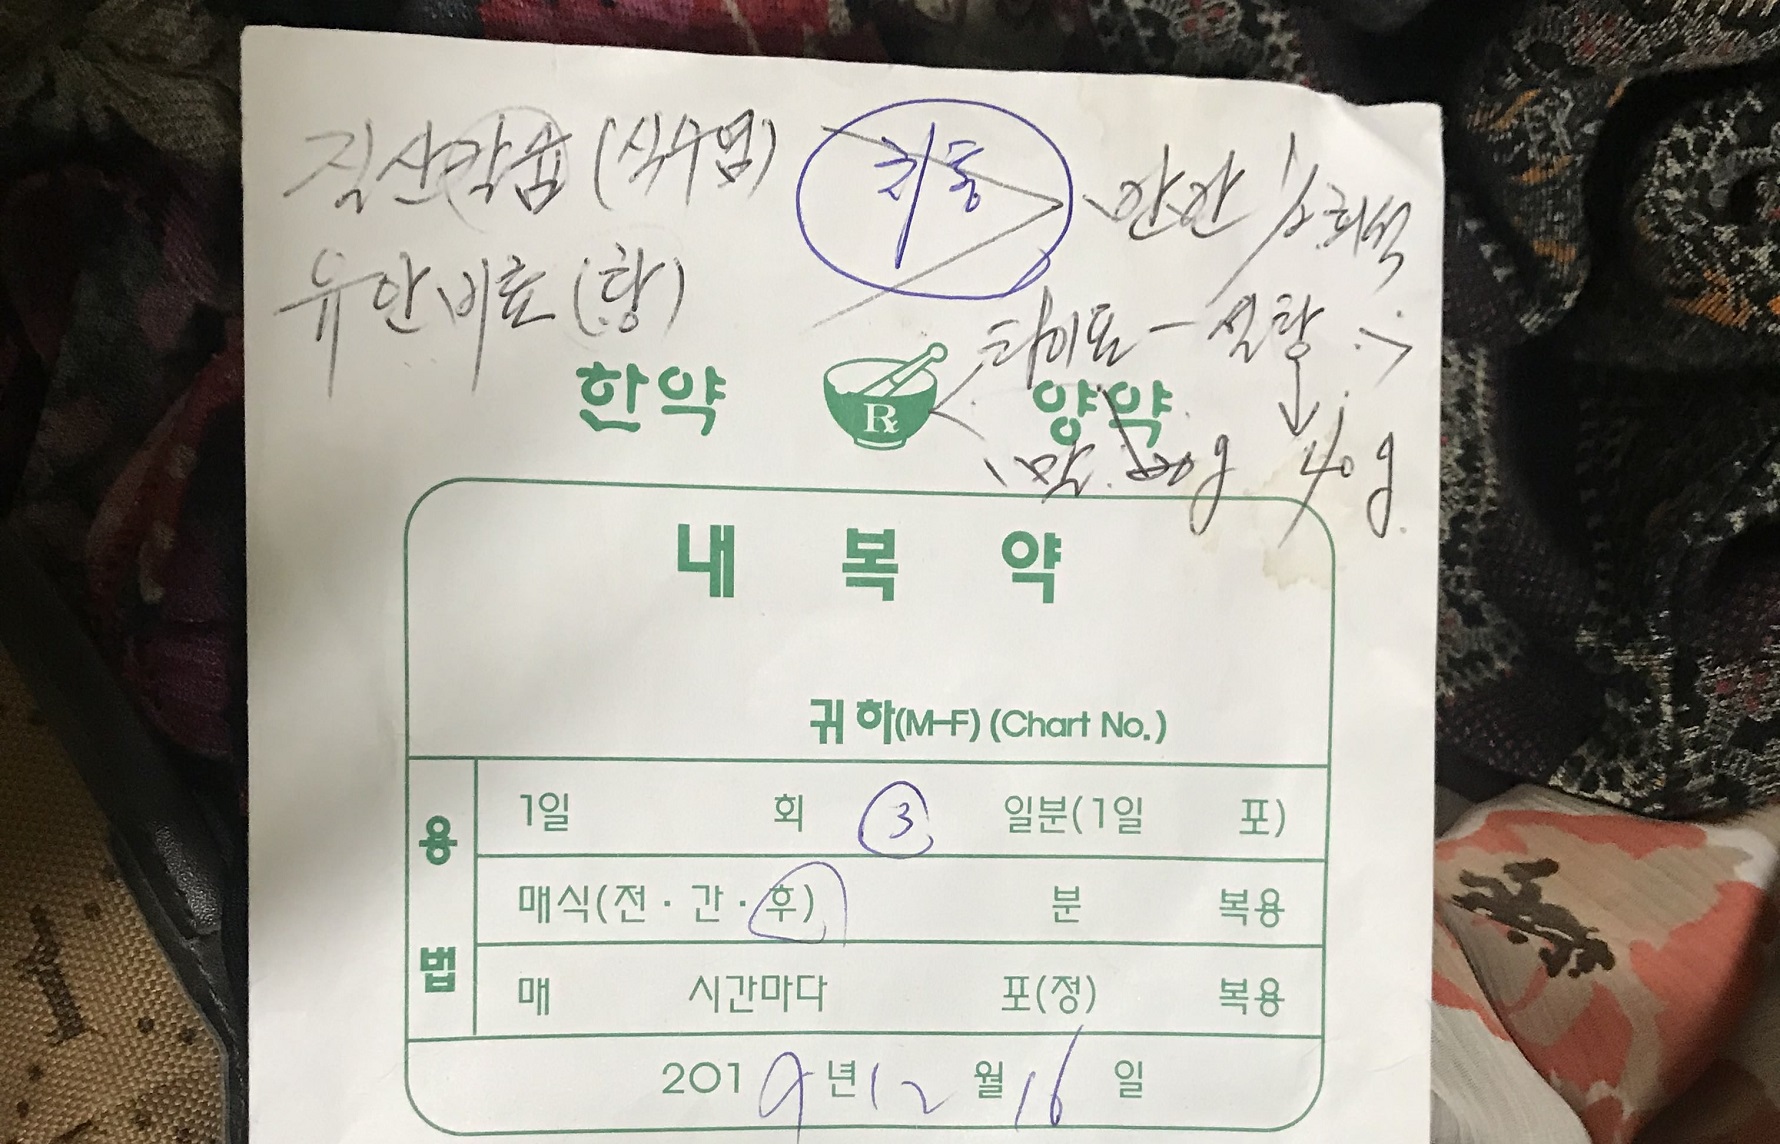 질산칼슘 (식수염)
유안비료 (황)
안안 1/2 희석
타이포 - 설탕
40g
한약 Rx 양약
내 복 약
귀하(M-F) (Chart No.)
용법
1일 회 3 일분(1일 포)
매식(전·간·후) 분 복용
매 시간마다 포(정) 복용
2019년 12월 16일